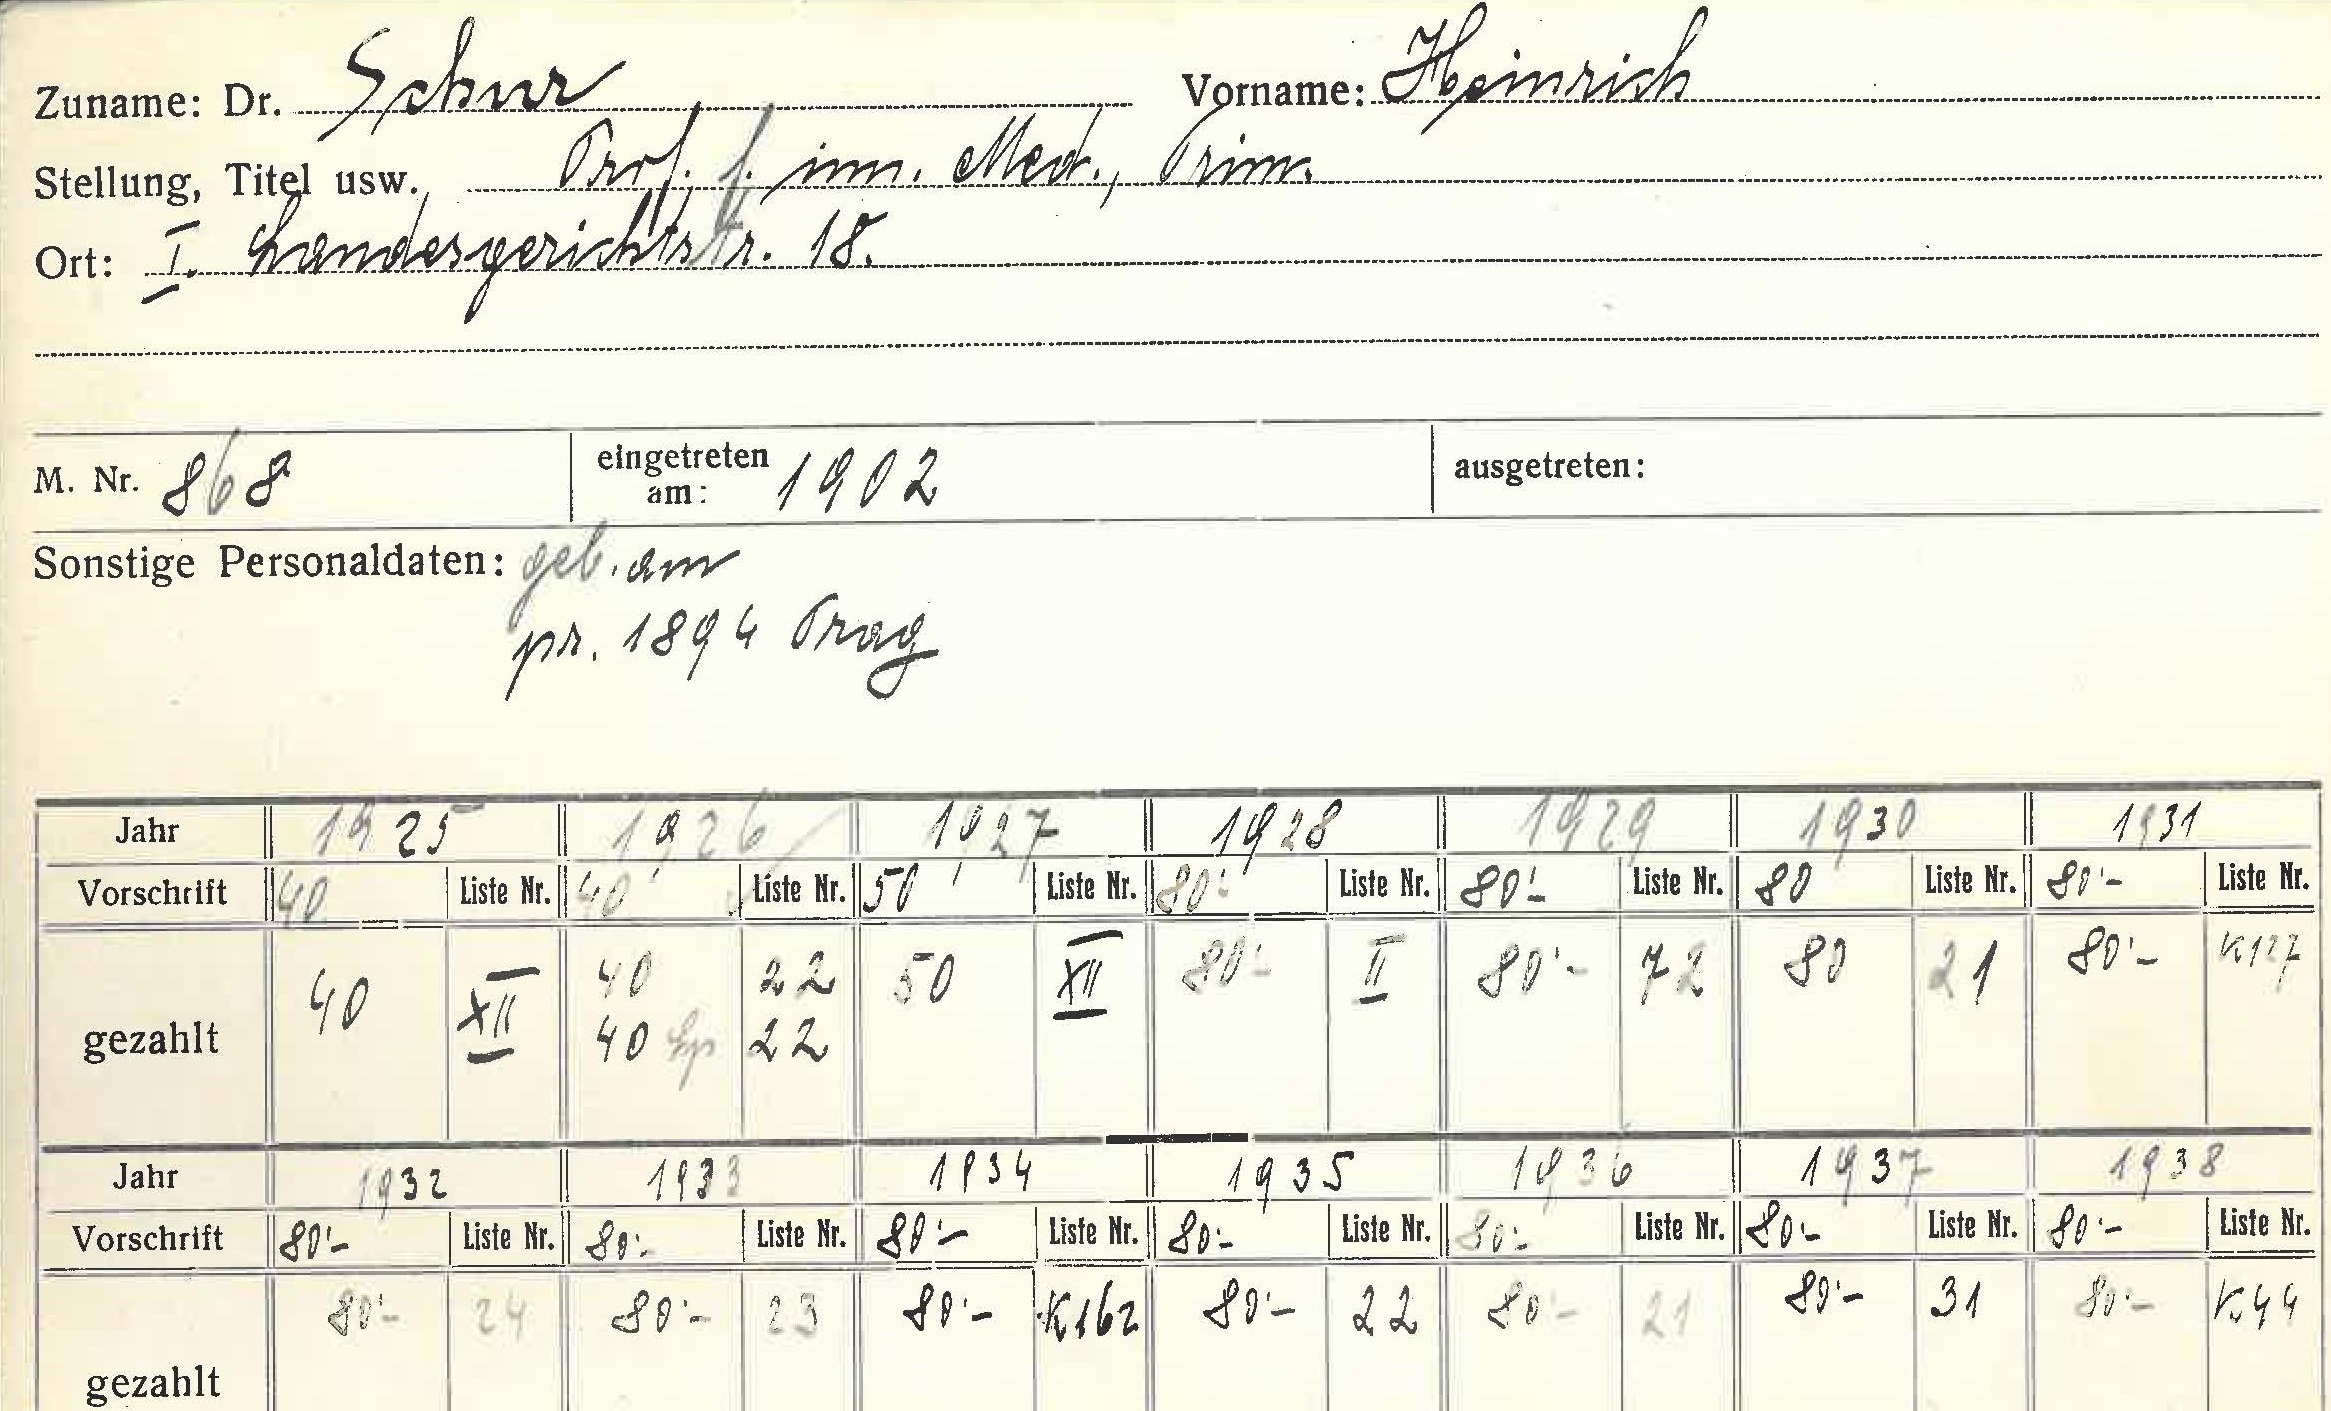 Zuname: Dr. Schur Vorname: Heinrich
Stellung, Titel usw. Prof. f. inn. Med., Prim.
Ort: I. Landesgerichtsstr. 18.
M. Nr. 868 eingetreten am: 1902 ausgetreten:
Sonstige Personaldaten: geb. am
pr. 1894 Prag
Jahr 1925 1926 1927 1928 1929 1930 1931
Vorschrift 40 Liste Nr. 40 Liste Nr. 50 Liste Nr. 80'- Liste Nr. 80'- Liste Nr. 80 Liste Nr. 80'- Liste Nr.
gezahlt 40 XII 40 22 50 XII 80'- II 80'- 72 80 21 80'- K127
40 22
Jahr 1932 1933 1934 1935 1936 1937 1938
Vorschrift 80'- Liste Nr. 80'- Liste Nr. 80'- Liste Nr. 80'- Liste Nr. 80'- Liste Nr. 80'- Liste Nr. 80'- Liste Nr.
gezahlt 80'- 24 80'- 23 80'- K162 80'- 22 80'- 21 80'- 31 80'- K44